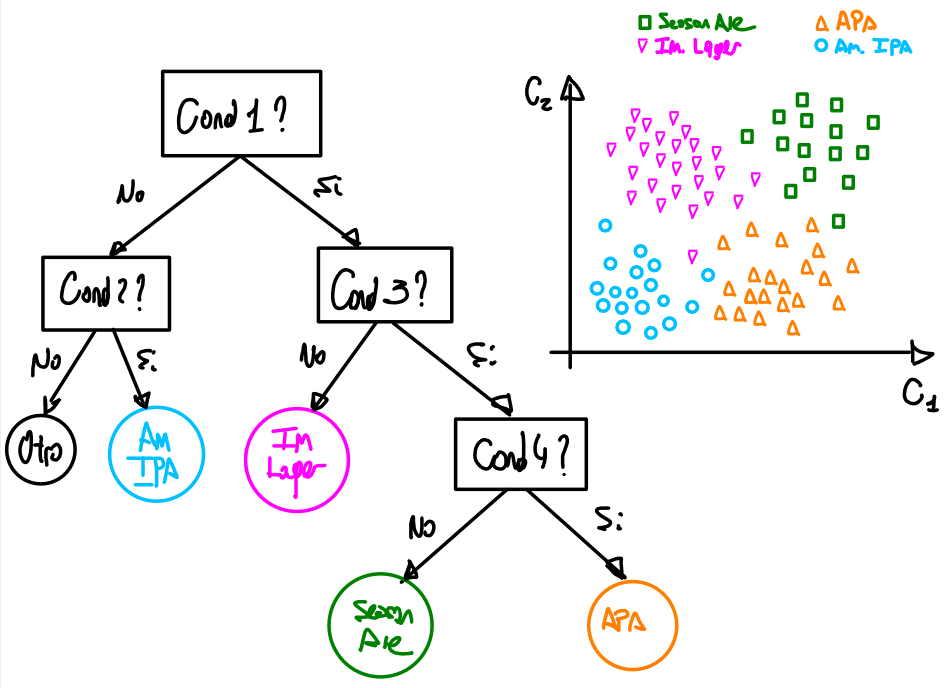 Season Ale
APA
Im. Lager
Am. IPA
C2
Cond 1?
No
Si
Cond 2?
Cond 3?
No
Si
No
Si
Otro
Am
IPA
Im
Lager
Cond 4?
C1
No
Si
Season
Ale
APA